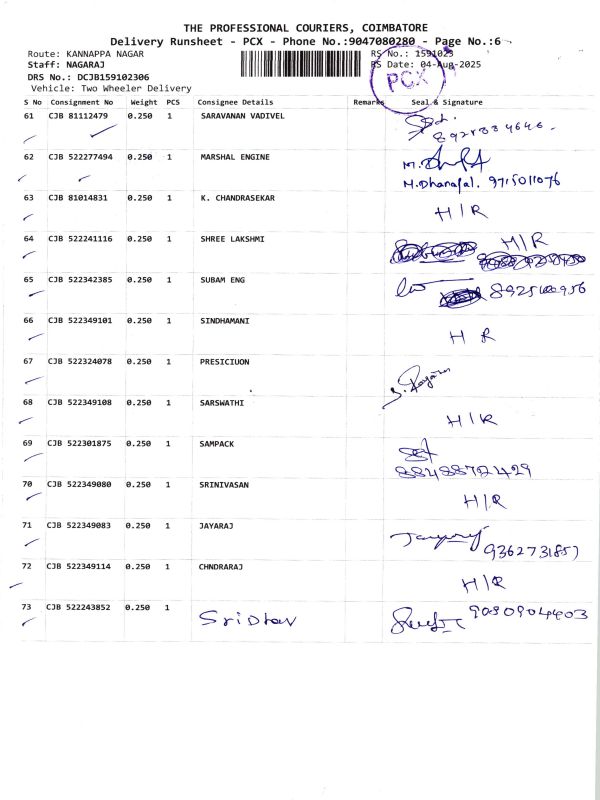 THE PROFESSIONAL COURIERS, COIMBATORE
Delivery Runsheet - PCX - Phone No.:9047080280 - Page No.:6
Route: KANNAPPA NAGAR RS No.: 1591023
Staff: NAGARAJ RS Date: 04-Aug-2025
PCX
DRS No.: DCJB159102306
Vehicle: Two Wheeler Delivery
S No Consignment No Weight PCS Consignee Details Remarks Seal & Signature
61 CJB 81112479 0.250 1 SARAVANAN VADIVEL
62 CJB 522277494 0.250 1 MARSHAL ENGINE
M. Dhanapal. 9715011076
63 CJB 81014831 0.250 1 K. CHANDRASEKAR
H/R
64 CJB 522241116 0.250 1 SHREE LAKSHMI H/R
65 CJB 522342385 0.250 1 SUBAM ENG
66 CJB 522349101 0.250 1 SINDHAMANI
H R
67 CJB 522324078 0.250 1 PRESICIUON
68 CJB 522349108 0.250 1 SARSWATHI
H/R
69 CJB 522301875 0.250 1 SAMPACK
8848872429
70 CJB 522349080 0.250 1 SRINIVASAN
H/R
71 CJB 522349083 0.250 1 JAYARAJ
Jayaraj 9362731857
72 CJB 522349114 0.250 1 CHNDRARAJ
H/R
73 CJB 522243852 0.250 1 Sridhar 9080904403